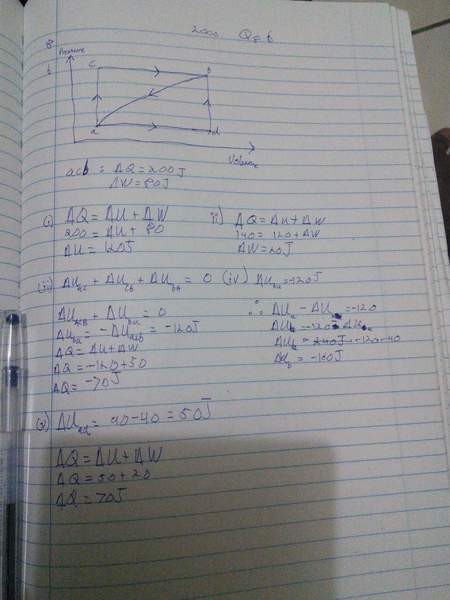 2000 Q 6
8
Pressure
c
b
a
d
Volume
acb = ΔQ = 200J
ΔW = 80J
(i) ΔQ = ΔU + ΔW
200 = ΔU + 80
ΔU = 120J
ii) ΔQ = ΔU + ΔW
140 = 120 + ΔW
ΔW = 20J
(iii) ΔUac + ΔUcb + ΔUba = 0
ΔUacb + ΔUba = 0
ΔUba = -ΔUacb = -120J
ΔQ = ΔU + ΔW
ΔQ = -120 + 50
ΔQ = -70J
(iv) = -120J
∴ ΔUa - ΔU = -120
ΔUb = -160J
(v) ΔUad = 90 - 40 = 50J
ΔQ = ΔU + ΔW
ΔQ = 50 + 20
ΔQ = 70J